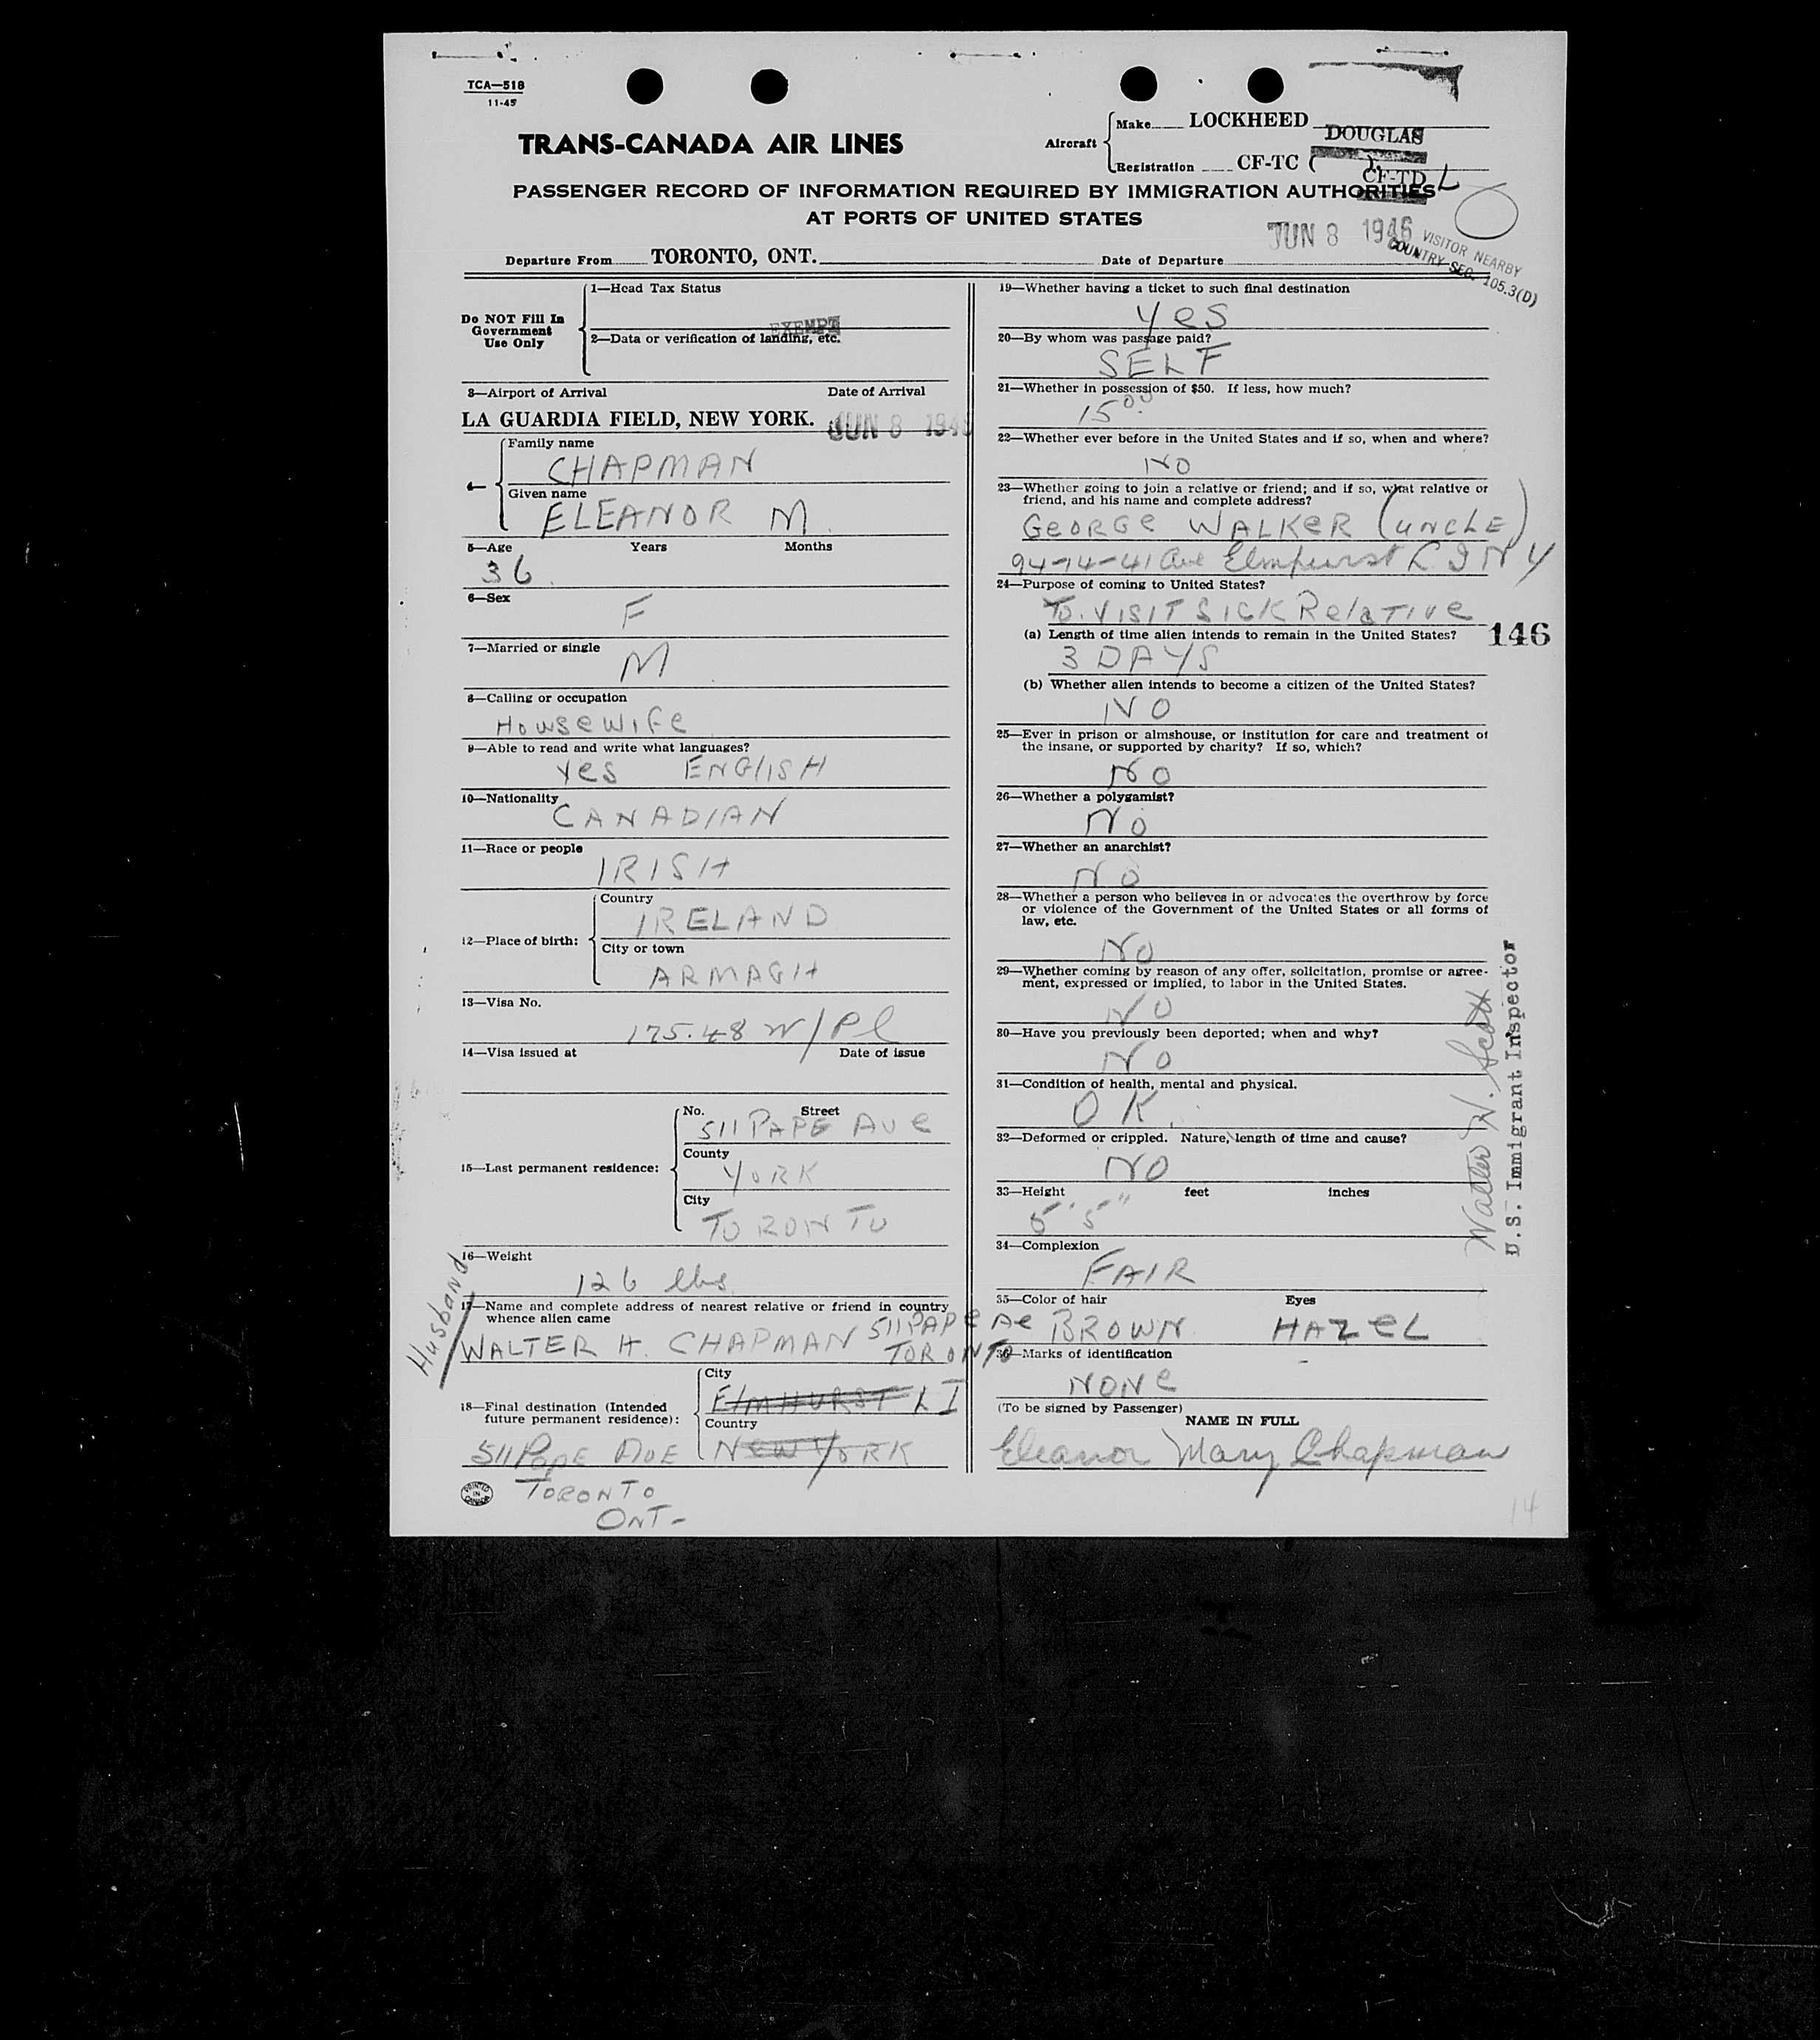 TCA—518
11-45
TRANS-CANADA AIR LINES
Aircraft
Make LOCKHEED
DOUGLAS
Registration CF-TC (
CF-TD L
PASSENGER RECORD OF INFORMATION REQUIRED BY IMMIGRATION AUTHORITIES
AT PORTS OF UNITED STATES
JUN 8 1946
VISITOR NEARBY
COUNTRY SEC. 105.3(D)
Departure From TORONTO, ONT. Date of Departure
Do NOT Fill In
Government
Use Only
1—Head Tax Status
EXEMPT
2—Data or verification of landing, etc.
3—Airport of Arrival Date of Arrival
LA GUARDIA FIELD, NEW YORK. JUN 8 194
4—
Family name
CHAPMAN
Given name
ELEANOR M.
5—Age Years Months
36
6—Sex
F
7—Married or single
M
8—Calling or occupation
HOUSEWIFE
9—Able to read and write what languages?
YES ENGLISH
10—Nationality
CANADIAN
11—Race or people
IRISH
12—Place of birth:
Country
IRELAND
City or town
ARMAGH
13—Visa No.
175.48 W/Pl
14—Visa issued at Date of issue
15—Last permanent residence:
No. Street
511 PAPE AVE
County
YORK
City
TORONTO
16—Weight
126 lbs
Husband
17—Name and complete address of nearest relative or friend in country
whence alien came
WALTER H. CHAPMAN 511 PAPE AE
TORONTO
18—Final destination (Intended
future permanent residence):
City
ELMHURST L I
Country
NEW YORK
511 PAPE AVE
TORONTO
ONT-
PRINTED IN CANADA
19—Whether having a ticket to such final destination
YES
20—By whom was passage paid?
SELF
21—Whether in possession of $50. If less, how much?
15.00
22—Whether ever before in the United States and if so, when and where?
NO
23—Whether going to join a relative or friend; and if so, what relative or
friend, and his name and complete address?
GEORGE WALKER (UNCLE)
94-14-41 Ave Elmhurst L I N Y
24—Purpose of coming to United States?
TO. VISIT SICK RELATIVE
146
(a) Length of time alien intends to remain in the United States?
3 DAYS
(b) Whether alien intends to become a citizen of the United States?
NO
25—Ever in prison or almshouse, or institution for care and treatment of
the insane, or supported by charity? If so, which?
NO
26—Whether a polygamist?
NO
27—Whether an anarchist?
NO
28—Whether a person who believes in or advocates the overthrow by force
or violence of the Government of the United States or all forms of
law, etc.
NO
29—Whether coming by reason of any offer, solicitation, promise or agree-
ment, expressed or implied, to labor in the United States.
NO
30—Have you previously been deported; when and why?
NO
31—Condition of health, mental and physical.
OK.
32—Deformed or crippled. Nature, length of time and cause?
NO
33—Height feet inches
5' 5"
34—Complexion
FAIR
35—Color of hair Eyes
BROWN HAZEL
36—Marks of identification
NONE
(To be signed by Passenger)
NAME IN FULL
Eleanor Mary Chapman
Walter W. Scott
U.S. Immigrant Inspector
14